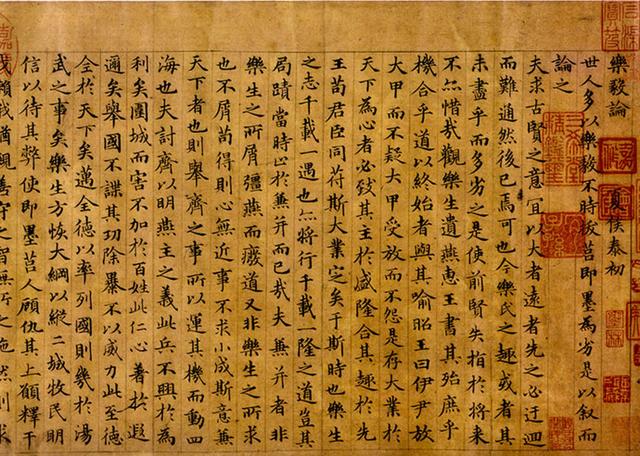 樂毅論 夏侯泰初
世人多以樂毅不時拔莒即墨為劣是以叙而
論之
夫求古賢之意宜以大者遠者先之必迂迴
而難通然後已焉可也今樂氏之趣或者其
未盡乎而多劣之是使前賢失指於將来
不亦惜哉觀樂生遺燕惠王書其殆庶乎
機合乎道以終始者與其喻昭王曰伊尹放
大甲而不疑大甲受放而不怨是存大業於
天下為心者必致其主於盛隆合其趣於先
王苟君臣同符斯大業定矣于斯時也樂生
之志千載一遇也亦將行千載一隆之道豈其
局蹟當時止於兼并而已哉夫兼并者非
樂生之所屑彊燕而廢道又非樂生之所求
也不屑苟得則心無近事不求小成斯意兼
天下者也則舉齊之事所以運其機而動四
海也夫討齊以明燕主之義此兵不興於為
利矣圍城而害不加於百姓此仁心著於遐
邇矣舉國不謀其功除暴不以威力此至德
全於天下矣邁全德以率列國則幾於湯
武之事矣樂生方恢大綱以縱二城牧民明
信以待其弊使即墨莒人顧仇其上願釋干
戈賴我猶親善守之智無所之施然則求